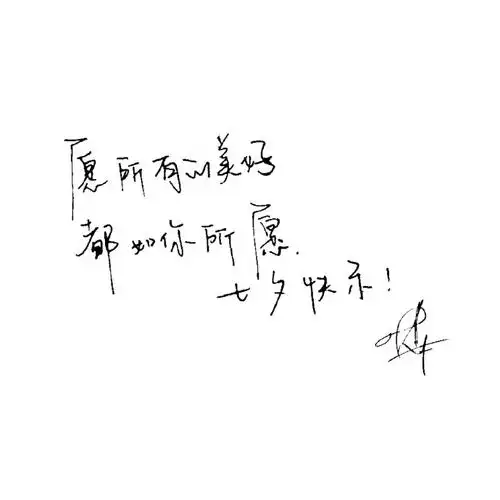 愿所有的美好
都如你所愿.
七夕快乐!